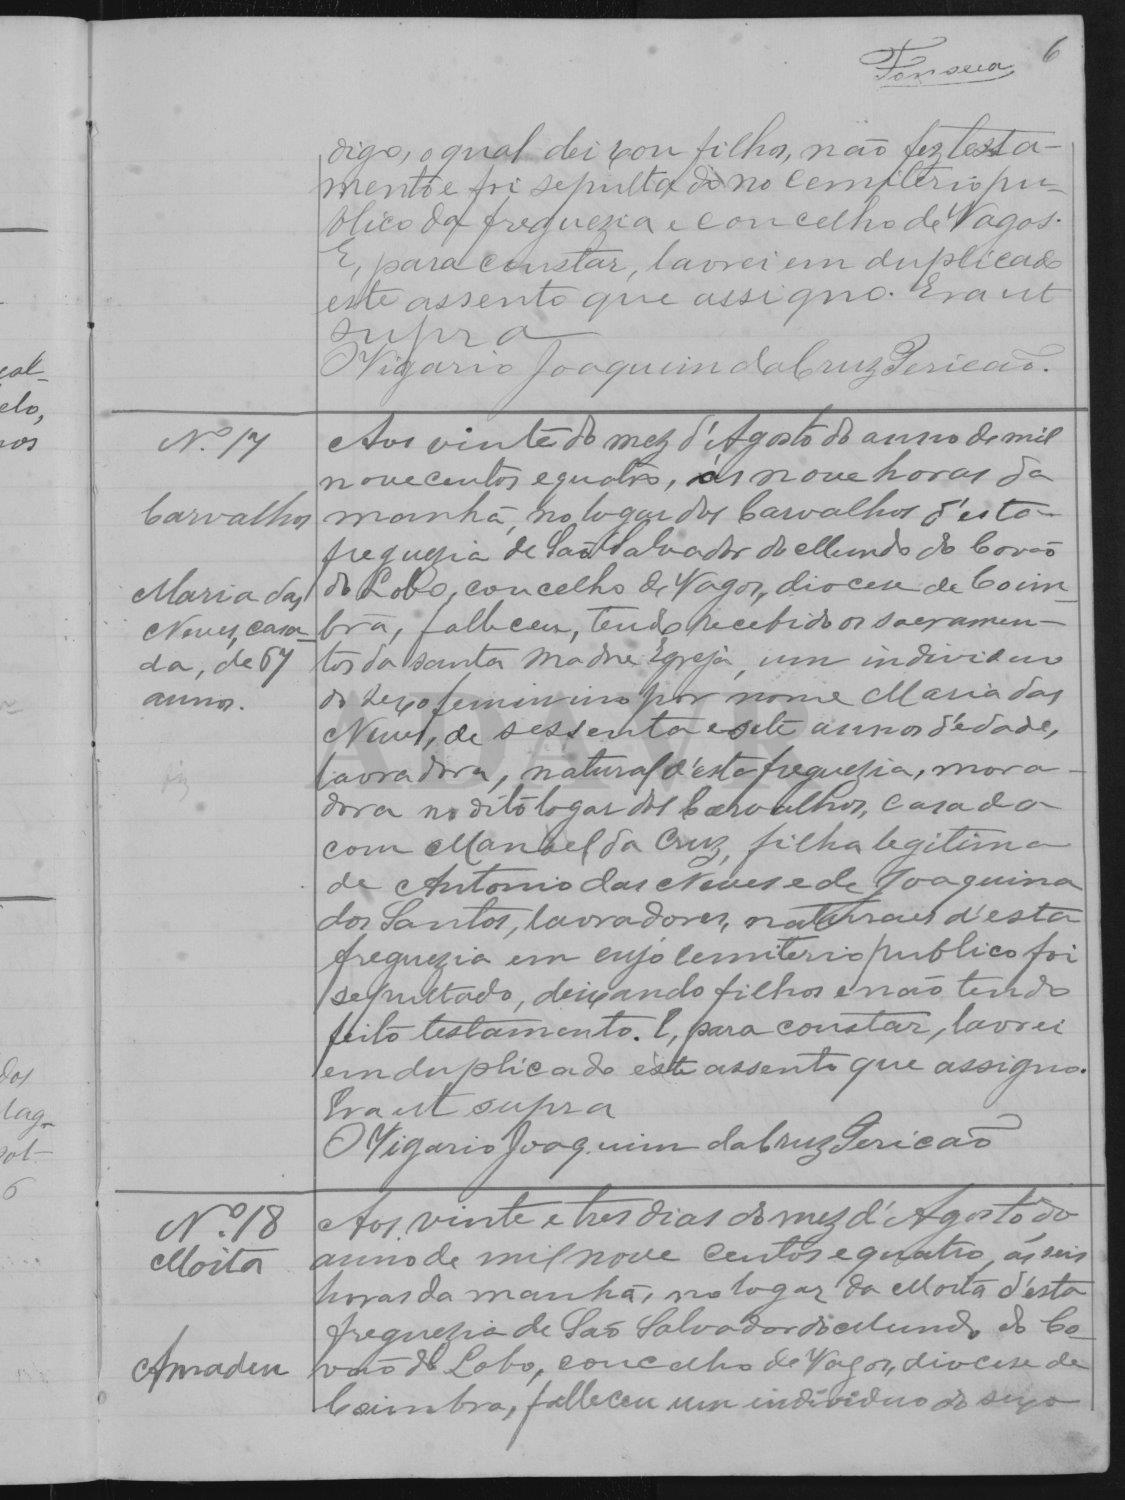 Fonseca
6
digo, o qual deixou filhos, não fez testa-
mento e foi sepultado no cemiterio pu-
blico da freguezia e concelho de Vagos.
E, para constar, lavrei em duplicado
este assento que assigno. Era ut
supra
O Vigario Joaquim da Cruz Pericão.
N.º 17
Carvalhos
Maria das
Neves, casa-
da, de 67
annos.
Aos vinte do mez d'Agosto do anno de mil
novecentos e quatro, ás nove horas da
manhã, no logar dos Carvalhos d'esta
freguezia de São Salvador do Mundo do Covão
do Lobo, concelho de Vagos, diocese de Coim-
bra, falleceu, tendo recebido os sacramen-
tos da santa madre Egreja, um individuo
do sexo feminino por nome Maria das
Neves, de sessenta e sete annos d'edade,
lavradora, natural d'esta freguezia, mora-
dora no dito logar dos Carvalhos, casada
com Manoel da Cruz, filha legitima
de Antonio das Neves e de Joaquina
dos Santos, lavradores, naturaes d'esta
freguezia em cujo cemiterio publico foi
sepultado, deixando filhos e não tendo
feito testamento. E, para constar, lavrei
em duplicado este assento que assigno.
Era ut supra
O Vigario Joaquim da Cruz Pericão
N.º 18
Moita
Amadeu
Aos vinte e tres dias do mez d'Agosto do
anno de mil nove centos e quatro, ás seis
horas da manhã, no logar da Moita d'esta
freguezia de São Salvador do Mundo do Co-
vão do Lobo, concelho de Vagos, diocese de
Coimbra, falleceu um individuo do sexo
ADAVR